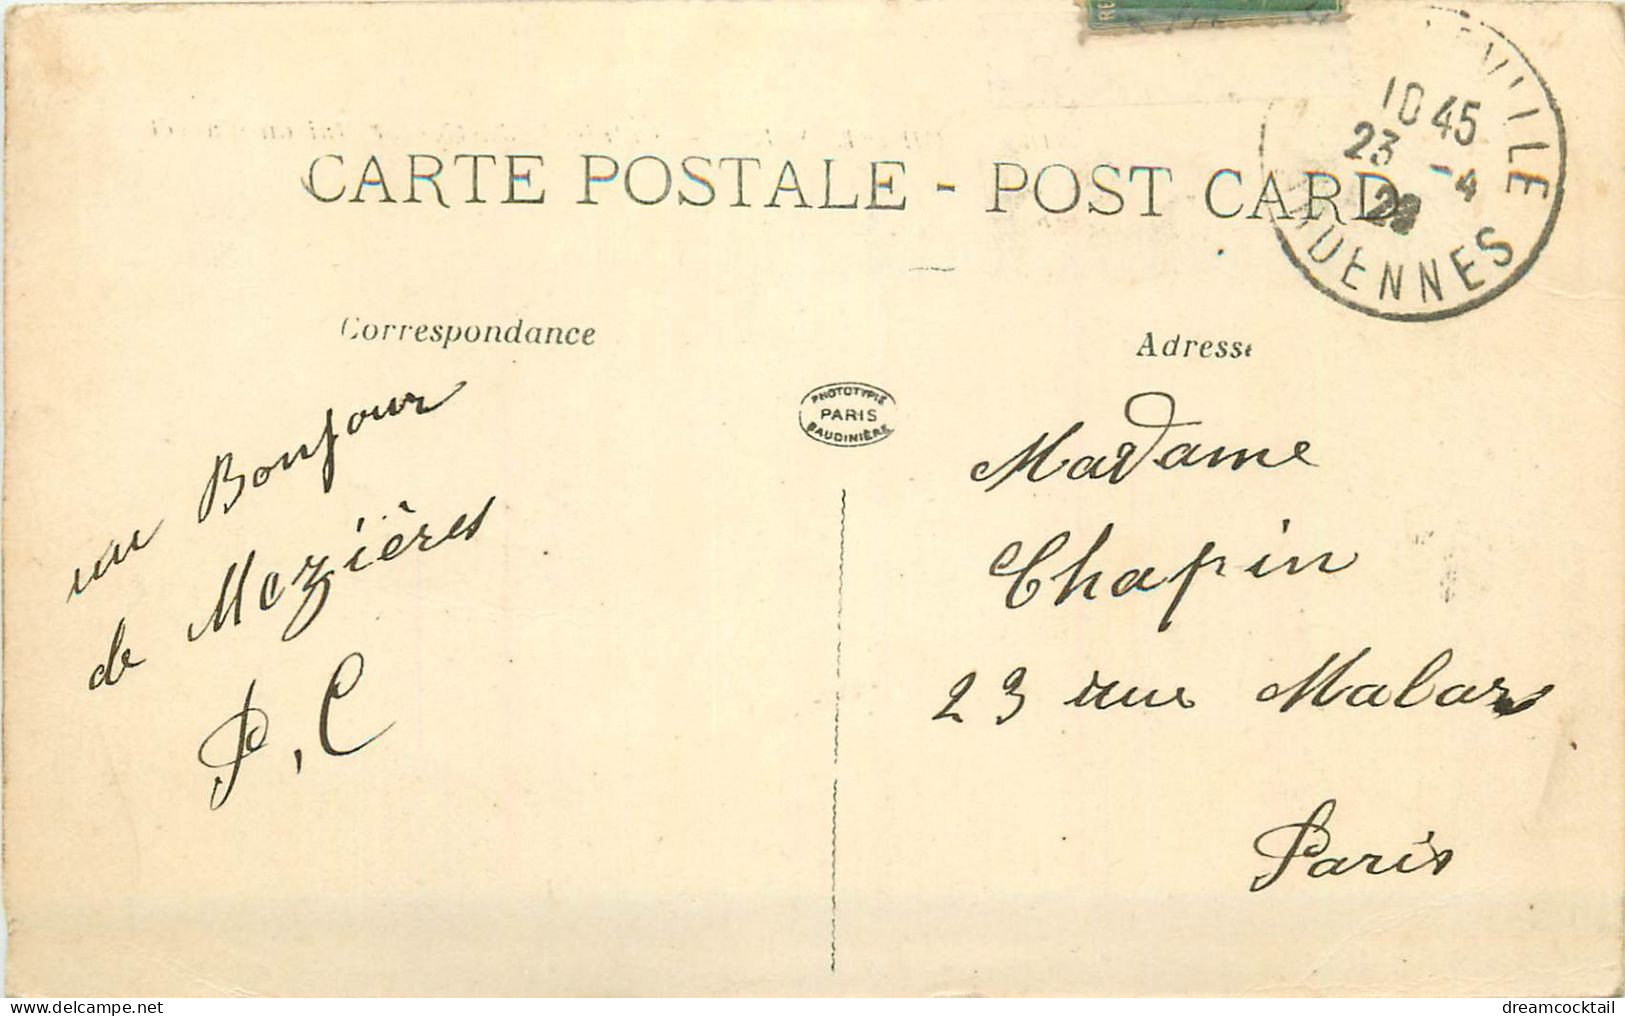 RE
10 45
23 -4
ARDENNES
CARTE POSTALE - POST CARD
Correspondance
Adresse
PHOTOTYPIE
PARIS
BAUDINIÈRE
un Bonjour
de Mezières
P, C
Madame
Chapin
23 rue Malar
Paris
www.delcampe.net
dreamcocktail